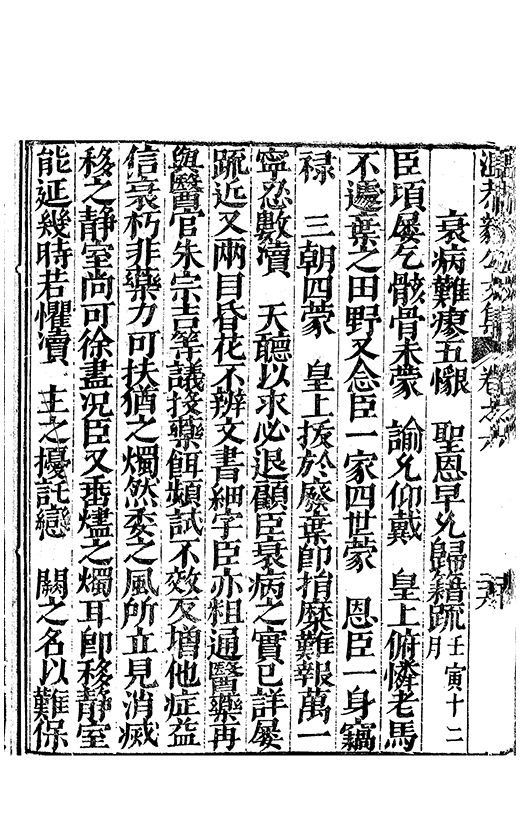 溫恭毅公文集 卷之六
衰病難瘳五懇 聖恩早允歸籍疏 壬寅十二月
臣項屢乞骸骨未蒙 諭允仰戴 皇上俯憐老馬
不遽棄之田野又念臣一家四世蒙 恩臣一身竊
祿 三朝四蒙 皇上拔於廢棄即捐糜難報萬一
寧忍數瀆 天聽以求必退顧臣衰病之實已詳屢
疏近又兩目昏花不辨文書細字臣亦粗通醫藥再
與醫官朱宗吉等議投藥餌頻試不效反增他症益
信衰朽非藥力可扶猶之燭然委之風所立見消滅
移之静室尚可徐盡況臣又垂燼之燭耳即移静室
能延幾時若懼瀆 主之擾託戀 闕之名以難保